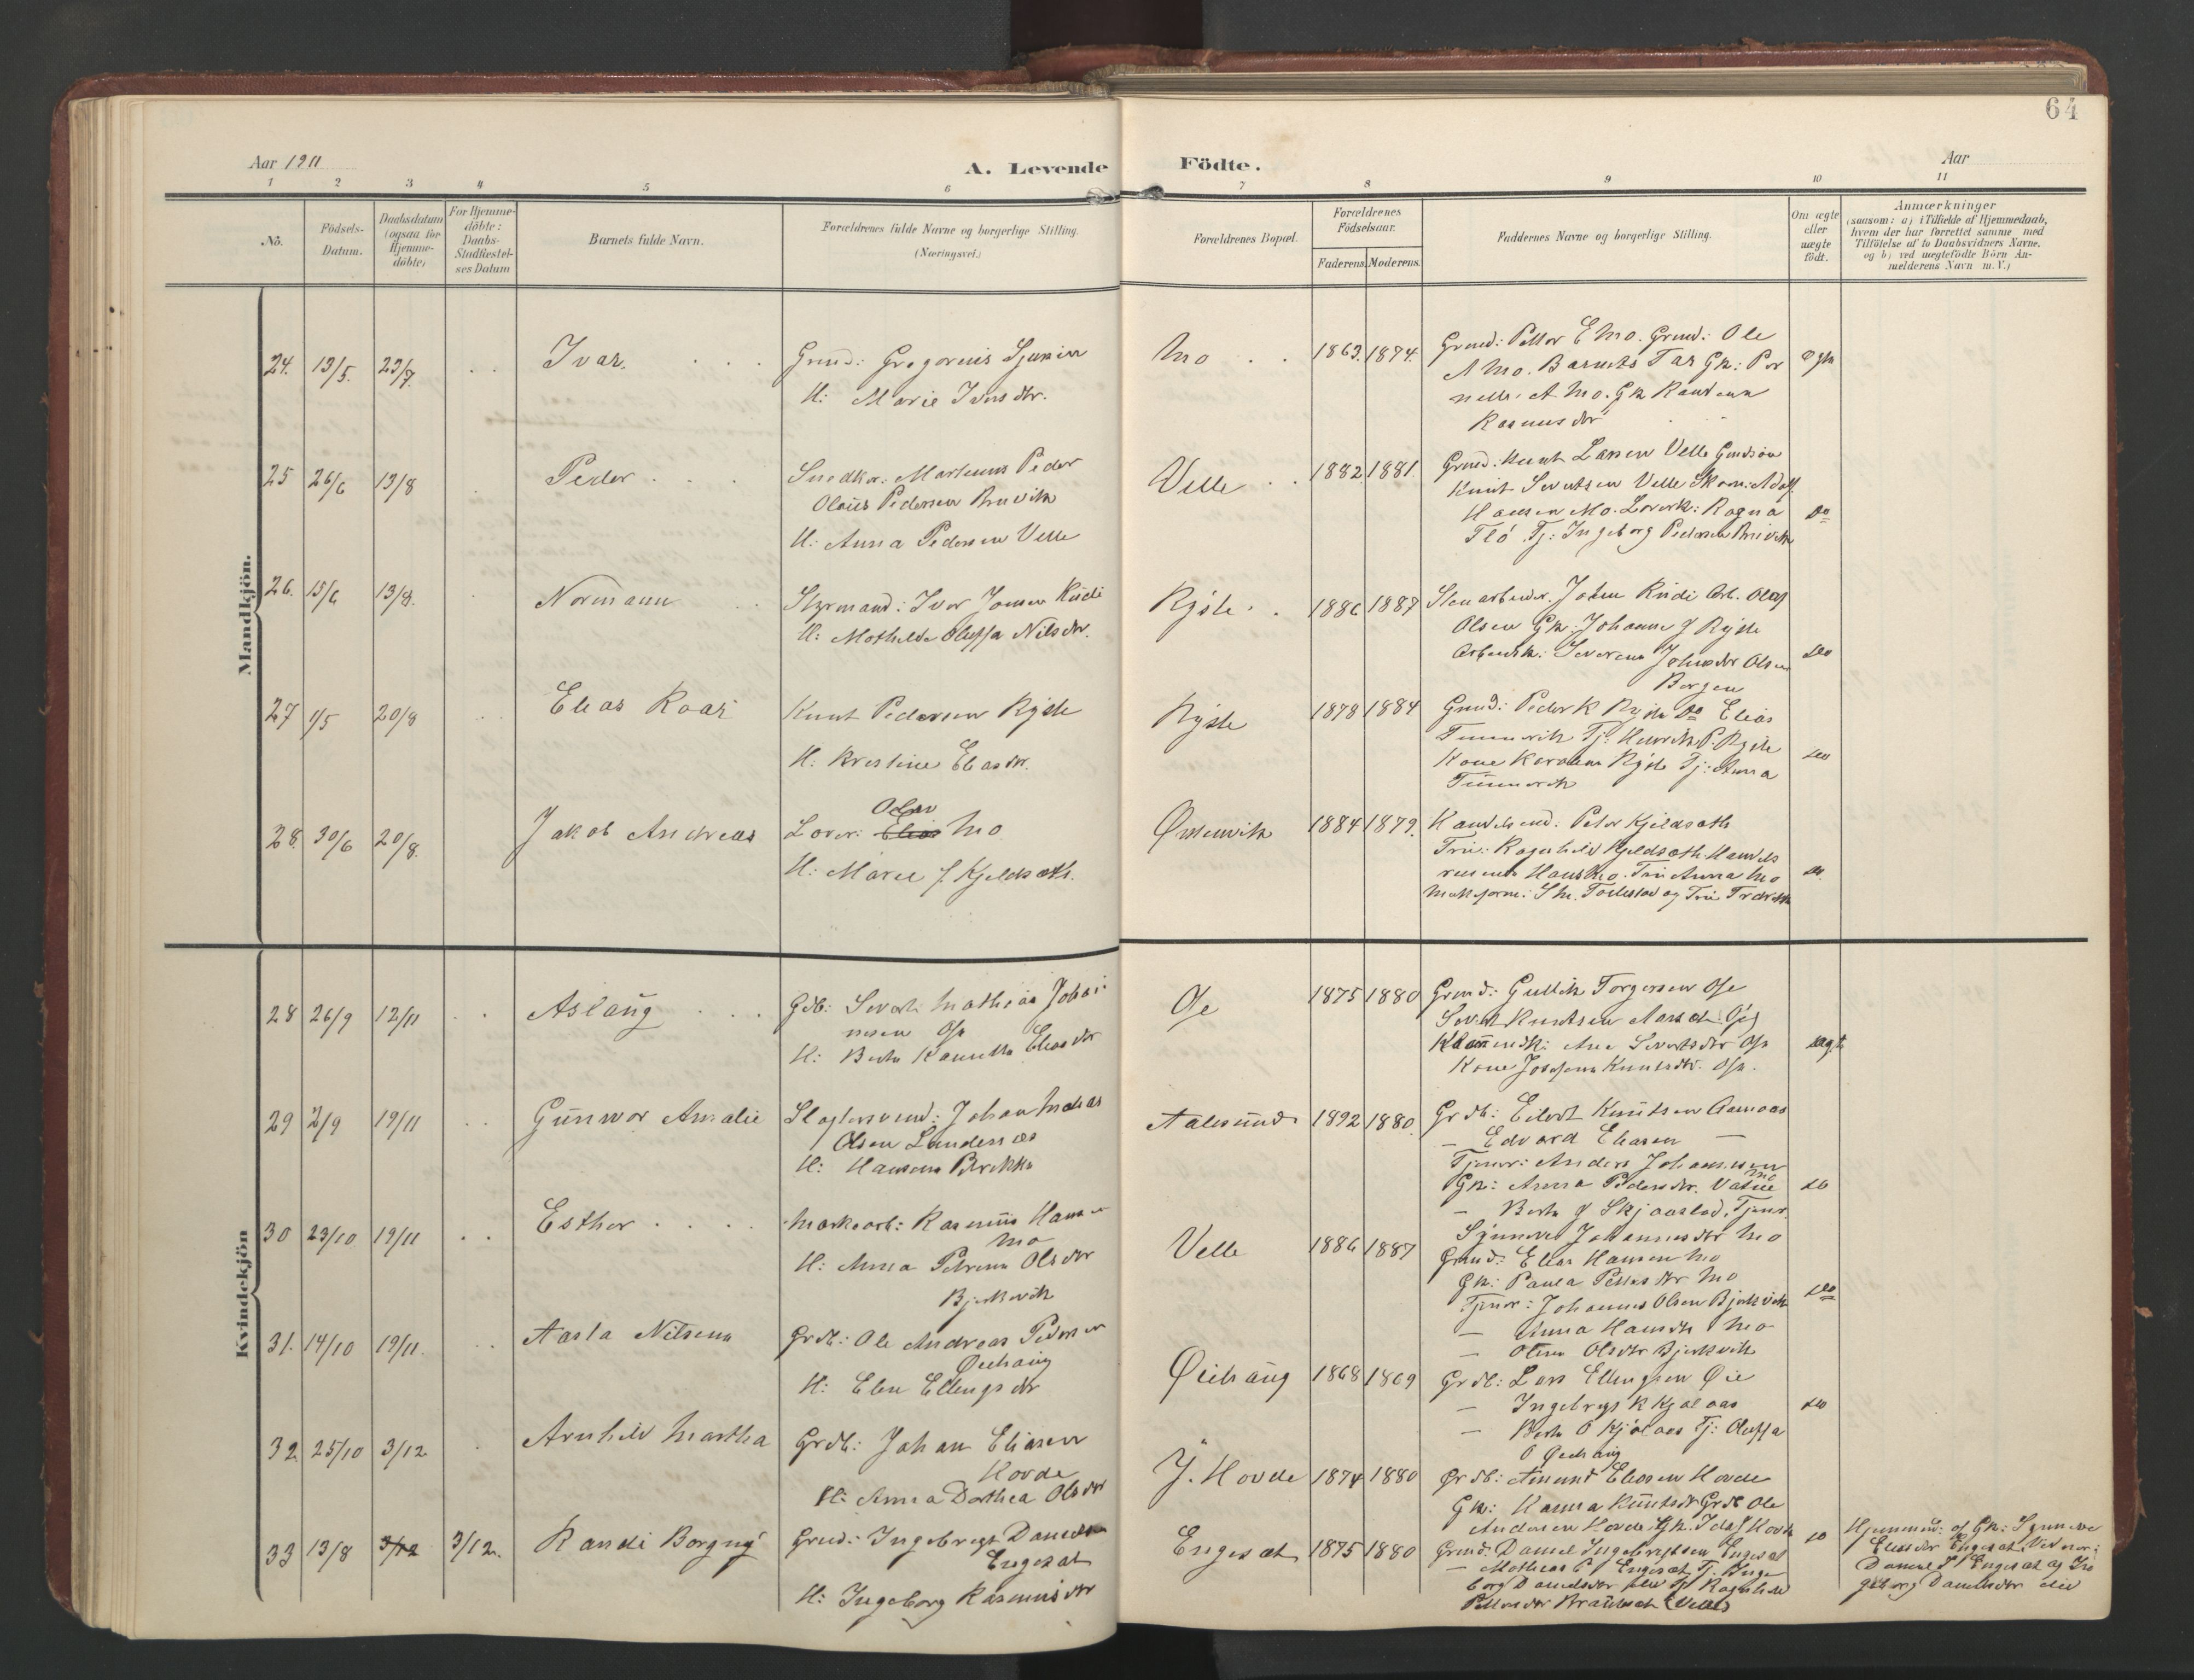 64
Aar 1911
A. Levende Födte.
Aar
1 2 3 4 5 6 7 8 9 10 11
No.
Födsels-
Datum.
Daabsdatum
(ogsaa for
Hjemme-
döbte)
For Hjemme-
döbte:
Daabs-
Stadfæstel-
ses Datum
Barnets fulde Navn.
Forældrenes fulde Navne og borgerlige Stilling.
(Næringsvei.)
Forældrenes Bopæl.
Forældrenes
Födselsaar.
Faderens. Moderens.
Faddernes Navne og borgerlige Stilling.
Om ægte
eller
uægte
födt.
Anmærkninger
(saasom: a) i Tilfælde af Hjemmedaab,
hvem der har forrettet samme med
Tilföielse af to Daabsvidners Navne,
og b) ved uægtefödte Börn An-
melderens Navn m. V.)
Mandkjön.
24. 13/5. 23/7. Ivar.
Grmd: Gregorius
H: Marie Ivers dtr.
Mo 1863. 1874.
Grmd: Petter E Mo. Grmd: Ole
A Mo. Barnets Far Gk: Per
nelle A Mo. Gk
Rasmus dtr
ægte
25 26/6 13/8 Peder
Snedker: Martinus Peder
Olaus Pedersen
H: Anna Pedersen Velle
Velle 1882 1881.
Grmd: Knut Larsen Velle
Knut Severtsen Velle
Hansen Mo. Lærerk: Ragna
Flö Tj: Ingeborg Pedersen
do
26. 15/6 13/8. Normann
Styrmand: Iver Jonsen Rudi
H: Mathilde Oluffa Nilsdtr.
Rysle 1886 1887
Stenarbeider. Johan Rudi Arb. Olaf
Olsen Gk: Johanne J Rysle
Arbeidsk: Johnsdtr Olsen
Bergen
do
27 1/5 20/8 Elias Roar
Knut Pedersen Rysle
H. Kristine Elias dtr.
Rysle 1878 1884
Grmd: Peder K Rysle do Elias
Tj: Henrik P. Rysle
Kone Rysle Tj: Anna
do
28. 30/6 20/8. Jakob Andreas
Olav
Lærer: Elias Mo
H: Marie f. Kjeldsæth.
Ørstenvik 1884 1879.
Handelsmd: Peter Kjeldsæth
Frue: Ragnhild Kjeldsæth. Handels
Hans Mo. Anna Mo
do.
Kvindekjön
28 26/9 12/11 Aslaug
Gdb: Severt Mathias Johan
nesen Ose
H: Berte Eliasdtr
Ose 1875 1880
Grmd: Gullik Torgersen Ose
Severt Knutsen
Ane Sivertsdtr Ose
Kone Josefine Knutsdtr. Ose.
ægte
29 2/9 19/11 Gunvor Amalie
Slagtersvend: Johan
Olsen Landernæs
H: Hansine Brekke
Aalesund 1892 1880
Grdb: Eilert Knutsen Aamaas
— Edvard Eliasen —
Tjener: Anders Johannesen
Mo
Gk: Anna Pedersdtr. Vatne
— Berte J Skjaastad, Tjener
Synneve Johannesdtr Mo
do
30 23/10 19/11 Esther
Rasmus Hansen
Mo
H: Anna Petrine Olsdtr
Bjerkvik
Velle 1886 1887
Grmd: Elias Hansen Mo
Gk: Paula Pettersdtr Mo
Tjener: Johannes Olsen Bjerkvik
— Anna Hansdtr Mo
— Oline Olsdtr Bjerkvik
do
31. 14/10 19/11. Aasta Nilsine
Grdb: Ole Andreas Pedersen
Øiehaug
H: Elen Ellingsdtr
Øiehaug 1868 1869
Grdb: Lars Ellingsen Øie
— Ingebregt K Kjølaas
— Berte O Kjølaas Tj: Oluffa
O Øiehaug
do
32. 25/10 3/12 Arnhild Martha
Grdb: Johan Eliasen
Hovde
H: Anna Dorthea Olsdtr
Y. Hovde 1874 1880
Grdb: Amund Eliasen Hovde
Gk: Hanna Knutsdtr Grdb Ole
Andersen Hovde Gk. Ida J Hovde
do
33 13/8 3/12 3/12. Randi Borgny
Grmd: Ingebregt Danielsen
Engesæt
H: Ingeborg Rasmusdtr
Engesæt 1875 1880
Grmd: Daniel Ingebregtsen Engesæt
— Mathias Engesæt Tj. Inge
borg Danielsdtr Ragnhild
Pettersdtr Velle
Hjemmed: af Gk: Synneve
Eliasdtr Engesæt. Vidner:
Daniel I Engesæt og In
geborg Danielsdtr